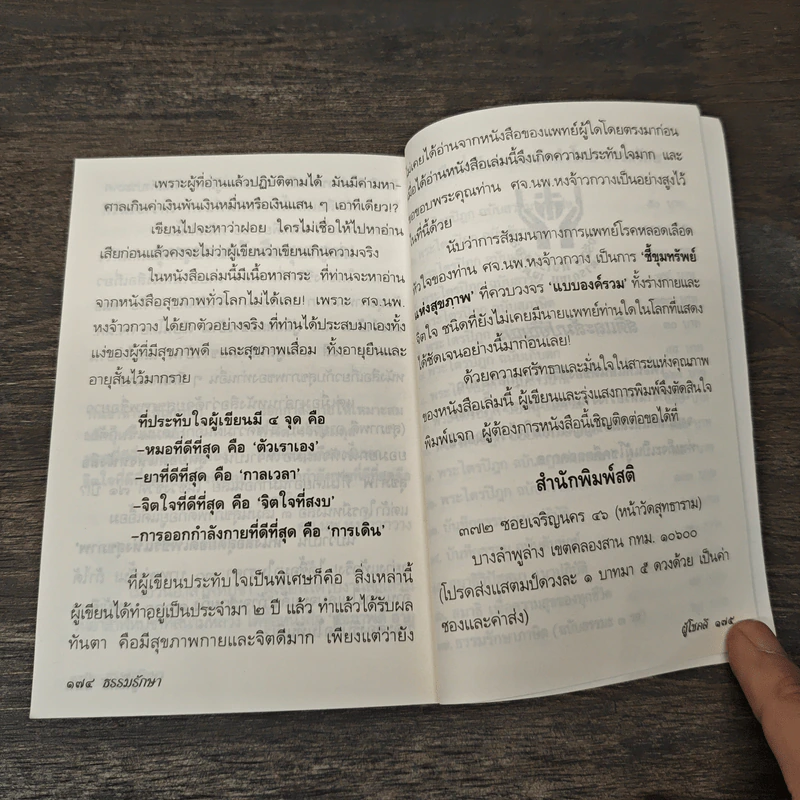 เพราะผู้ที่อ่านแล้วปฏิบัติตามได้ มันมีค่ามหา-
ศาลเกินค่าเงินพันเงินหมื่นหรือเงินแสน ๆ เอาทีเดียว!?
เขียนไปจะหาว่าฝอย ใครไม่เชื่อให้ไปหาอ่าน
เสียก่อนแล้วคงจะไม่ว่าผู้เขียนว่าเขียนเกินความจริง
ในหนังสือเล่มนี้มีเนื้อหาสาระ ที่ท่านจะหาอ่าน
จากหนังสือสุขภาพทั่วโลกไม่ได้เลย! เพราะ ศจ.นพ.
หงจ้าวกวาง ได้ยกตัวอย่างจริง ที่ท่านได้ประสบมาเองทั้ง
แง่ของผู้ที่มีสุขภาพดี และสุขภาพเสื่อม ทั้งอายุยืนและ
อายุสั้นไว้มากราย
ที่ประทับใจผู้เขียนมี ๔ จุด คือ
-หมอที่ดีที่สุด คือ ‘ตัวเราเอง’
-ยาที่ดีที่สุด คือ ‘กาลเวลา’
-จิตใจที่ดีที่สุด คือ ‘จิตใจที่สงบ’
-การออกกำลังกายที่ดีที่สุด คือ ‘การเดิน’
ที่ผู้เขียนประทับใจเป็นพิเศษก็คือ สิ่งเหล่านี้
ผู้เขียนได้ทำอยู่เป็นประจำมา ๒ ปี แล้ว ทำแล้วได้รับผล
ทันตา คือมีสุขภาพกายและจิตดีมาก เพียงแต่ว่ายัง
๑๗๔ ธรรมรักษา
ไม่เคยได้อ่านจากหนังสือของแพทย์ผู้ใดโดยตรงมาก่อน
เมื่อได้อ่านหนังสือเล่มนี้จึงเกิดความประทับใจมาก และ
ขอขอบพระคุณท่าน ศจ.นพ.หงจ้าวกวางเป็นอย่างสูงไว้
ในที่นี้ด้วย
นับว่าการสัมมนาทางการแพทย์โรคหลอดเลือด
หัวใจของท่าน ศจ.นพ.หงจ้าวกวาง เป็นการ ‘ชี้ขุมทรัพย์
แห่งสุขภาพ’ ที่ควบวงจร ‘แบบองค์รวม’ ทั้งร่างกายและ
จิตใจ ชนิดที่ยังไม่เคยมีนายแพทย์ท่านใดในโลกที่แสดง
ได้ชัดเจนอย่างนี้มาก่อนเลย!
ด้วยความศรัทธาและมั่นใจในสาระแห่งคุณภาพ
ของหนังสือเล่มนี้ ผู้เขียนและรุ่งแสงการพิมพ์จึงตัดสินใจ
พิมพ์แจก ผู้ต้องการหนังสือนี้เชิญติดต่อขอได้ที่
สำนักพิมพ์สติ
๓๗๒ ซอยเจริญนคร ๔๖ (หน้าวัดสุทธาราม)
บางลำพูล่าง เขตคลองสาน กทม. ๑๐๖๐๐
(โปรดส่งแสตมป์ดวงละ ๑ บาทมา ๕ ดวงด้วย เป็นค่า
ซองและค่าส่ง)
ผู้โชคดี ๑๗๕